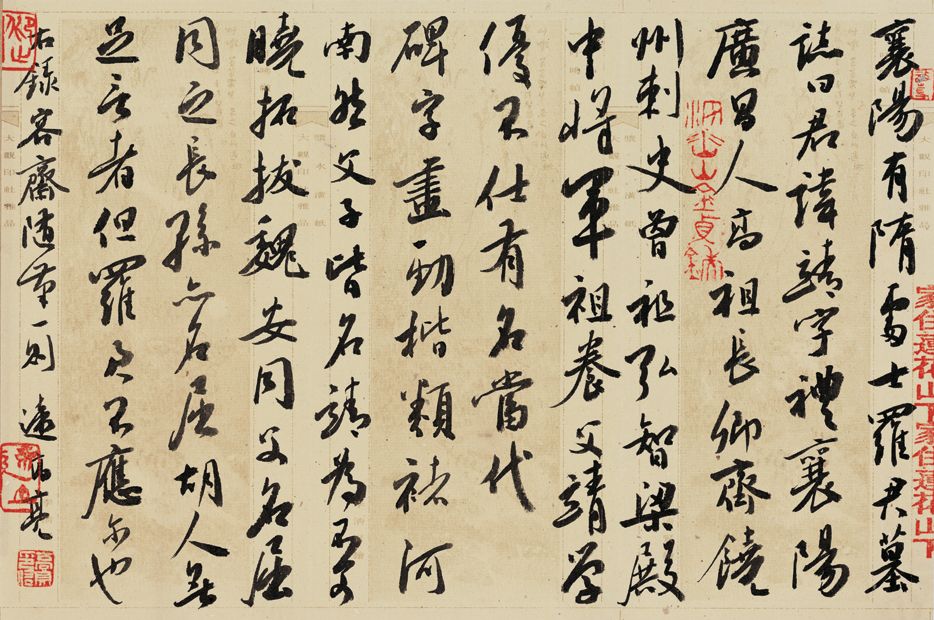 襄陽有隋處士羅君墓
誌曰君諱靖字禮襄陽
廣昌人高祖長卿齊饒
州刺史曾祖弘智梁殿
中將軍祖養父靖學
優不仕有名當代
碑字畫勁楷類褚河
南然父子皆名靖為不可
曉拓拔魏安同父名屈
同之長孫亦名屈胡人無
足言者但羅君不應爾也
右錄容齋隨筆一則 遠
家住蓮花山下
家住蓮花山下
大觀印社雅品